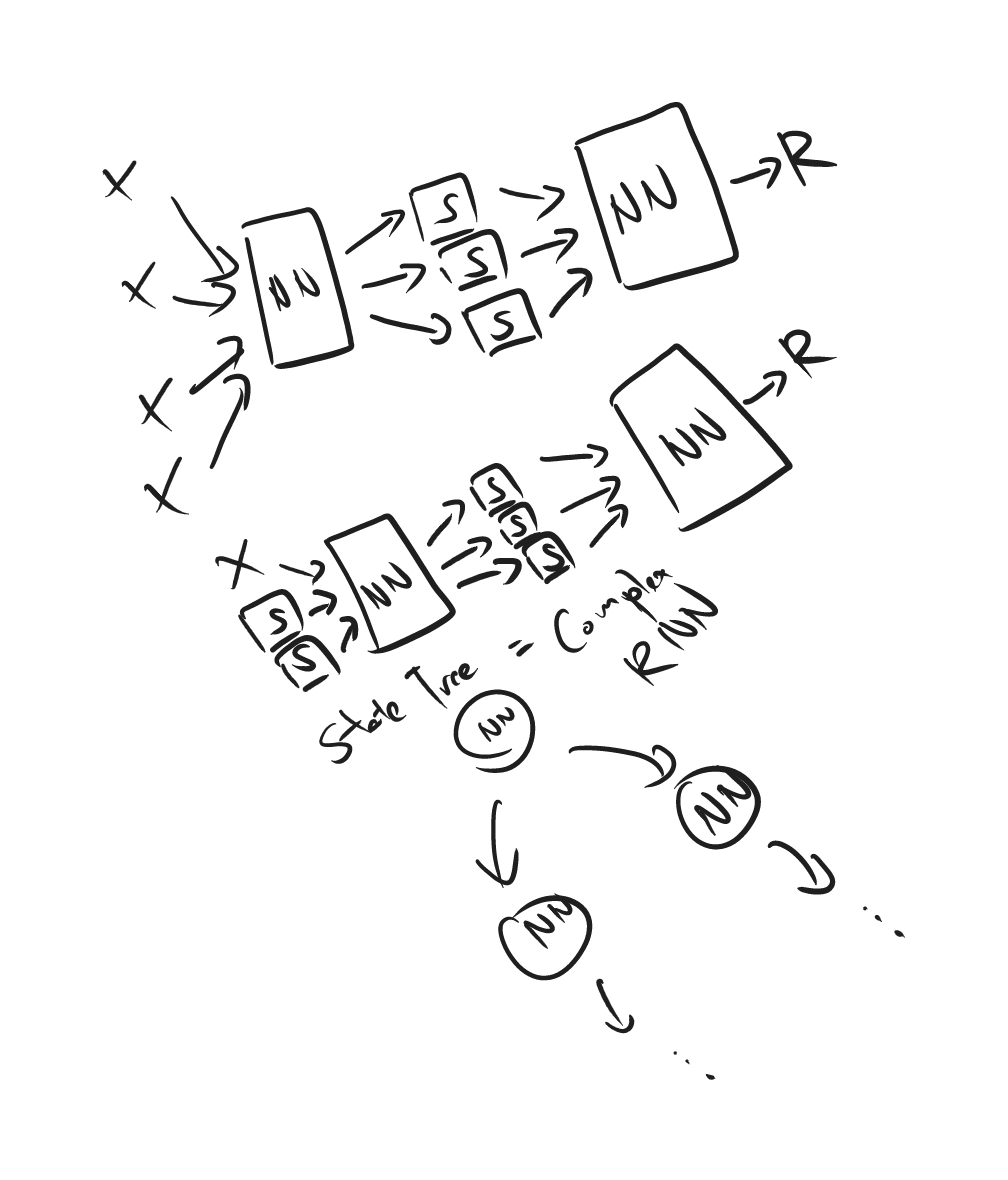 X
X
X
X
NN
S
S
S
NN
R
X
S
S
NN
S
S
S
NN
R
State Tree = Complex
RNN
NN
NN
...
NN
...